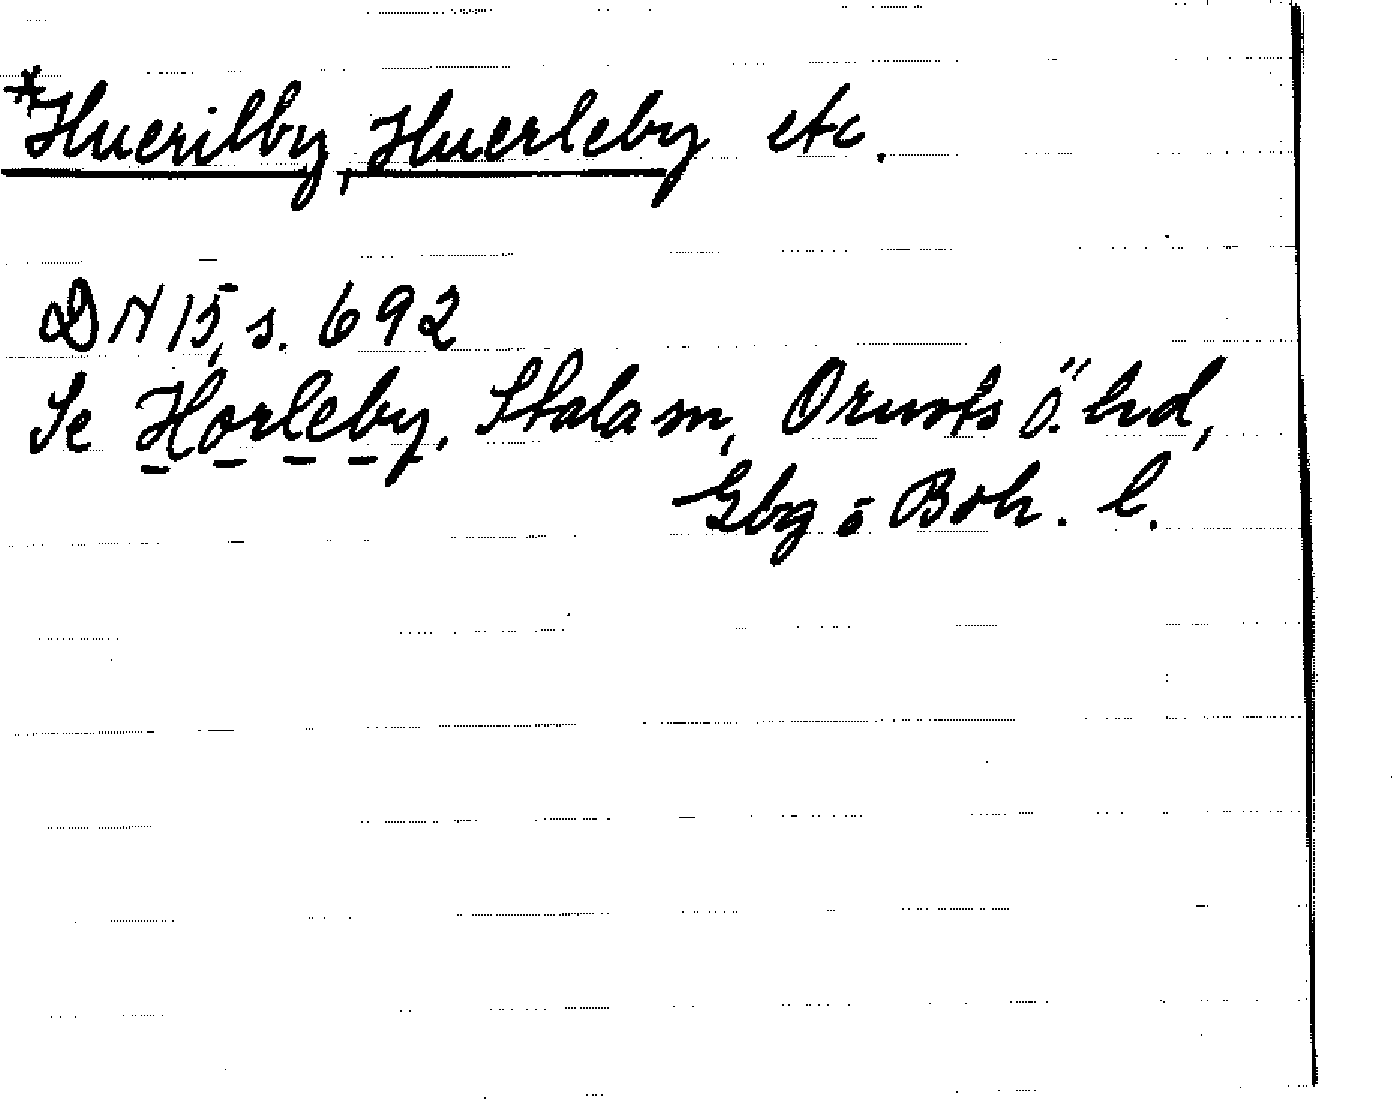 *Huerilby, Huerleby etc.
DN 15, s. 692
Se Horleby, Stala sn, Orusts Ö. hd,
Gbg o Boh. l.